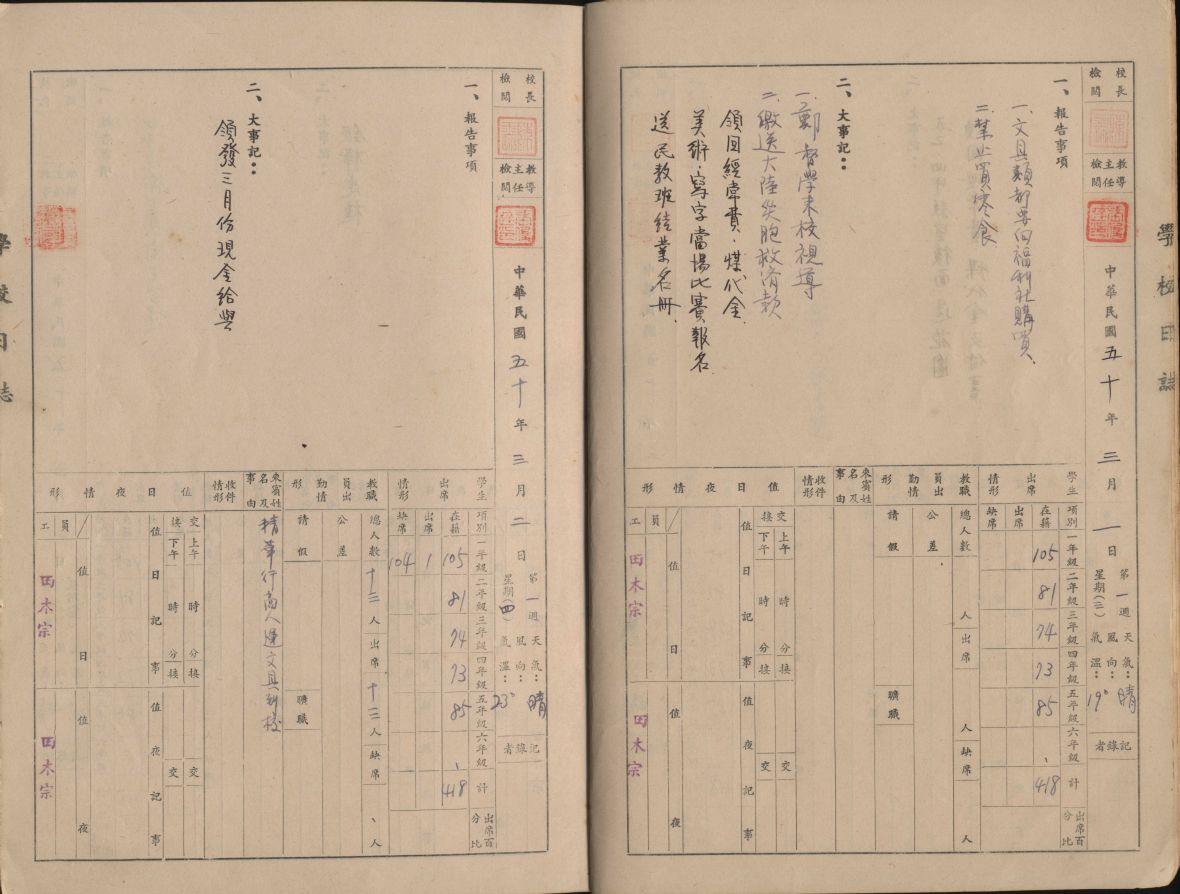 學校日誌
校長檢閱
教導主任檢閱
中華民國五十年三月一日
第一週 星期(三)
天氣:晴
風向:
氣溫:19°
記錄者
一、報告事項
一.文具類都要向福利社購買、
二.禁止買零食
二、大事記:
一.鄭督學来校視導
二.繳送大陸災胞救濟款
領回經常費、煤代金
美術、寫字當場比賽報名
送民教班結業名冊、
學生出席情形
項別 一年級 二年級 三年級 四年級 五年級 六年級 計 出席百分比
在籍 105 81 74 73 85 、 418
出席
缺席
教職員出勤情形
總人數 人 出席 人 缺席 人
公差
請假
曠職
來賓姓名及事由
收件情形
值日夜情形
交接 上午 時 分接 交
下午 時 分接 交
值日記事
值夜記事
員 值日 值夜
工 田木宗 田木宗
學校日誌
校長檢閱
教導主任檢閱
中華民國五十年三月二日
第一週 星期(四)
天氣:晴
風向:
氣溫:23°
記錄者
一、報告事項
二、大事記:
領發三月份現金給與
學生出席情形
項別 一年級 二年級 三年級 四年級 五年級 六年級 計 出席百分比
在籍 105 81 74 73 85 、 418
出席 1
缺席 104
教職員出勤情形
總人數十三人 出席十三人 缺席、人
公差
請假
曠職
來賓姓名及事由
精華行商人運文具到校
收件情形
值日夜情形
交接 上午 時 分接 交
下午 時 分接 交
值日記事
值夜記事
員 值日 值夜
工 田木宗 田木宗